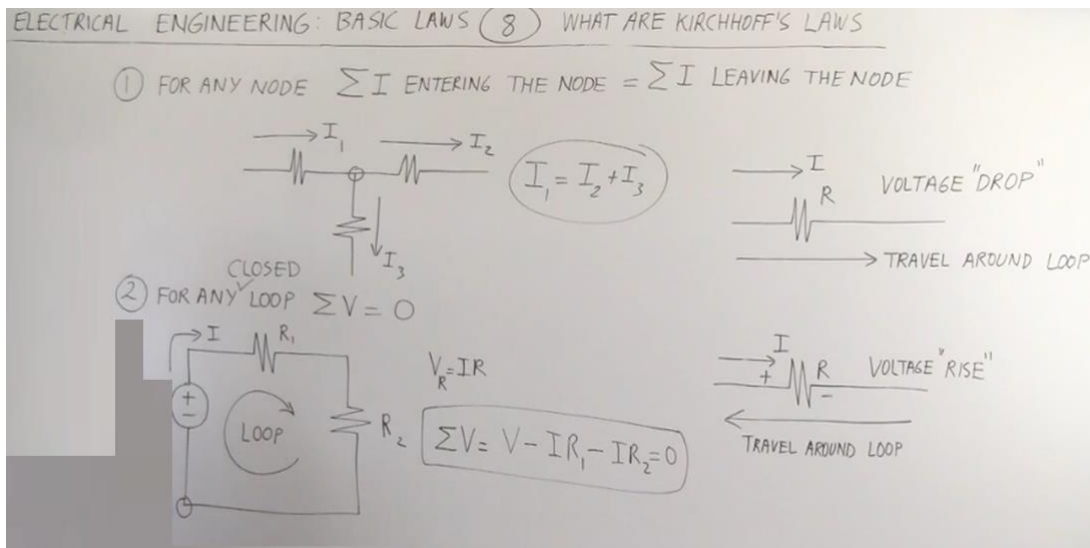 ELECTRICAL ENGINEERING: BASIC LAWS (8) WHAT ARE KIRCHHOFF'S LAWS
(1) FOR ANY NODE ΣI ENTERING THE NODE = ΣI LEAVING THE NODE
I₁
I₂
I₁ = I₂ + I₃
I₃
I
R
VOLTAGE "DROP"
TRAVEL AROUND LOOP
CLOSED
(2) FOR ANY LOOP ΣV = 0
I
R₁
+
−
LOOP
R₂
V_R = IR
ΣV = V − IR₁ − IR₂ = 0
I
+ R −
VOLTAGE "RISE"
TRAVEL AROUND LOOP